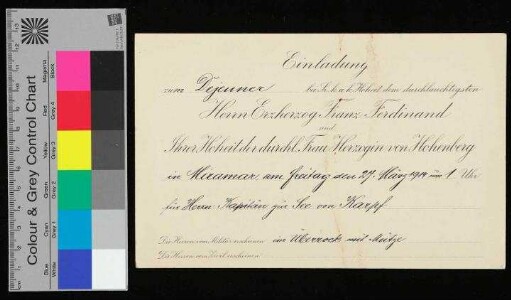 Colour & Grey Control Chart
Blue
Cyan
Green
Yellow
Red
Magenta
White
Grey 1
Grey 2
Grey 3
Grey 4
Black
Einladung
zum Dejeuner bei Sr. k. u. k. Hoheit dem durchlauchtigsten
Herrn Erzherzog Franz Ferdinand
und
Ihrer Hoheit der durchl. Frau Herzogin von Hohenberg
in Miramar, am Freitag den 27. März 1914 um 1 Uhr
für Herrn Kapitän zur See von Karpf
Die Herren vom Militär erscheinen im Überrock mit Mütze
Die Herren vom Zivil erscheinen